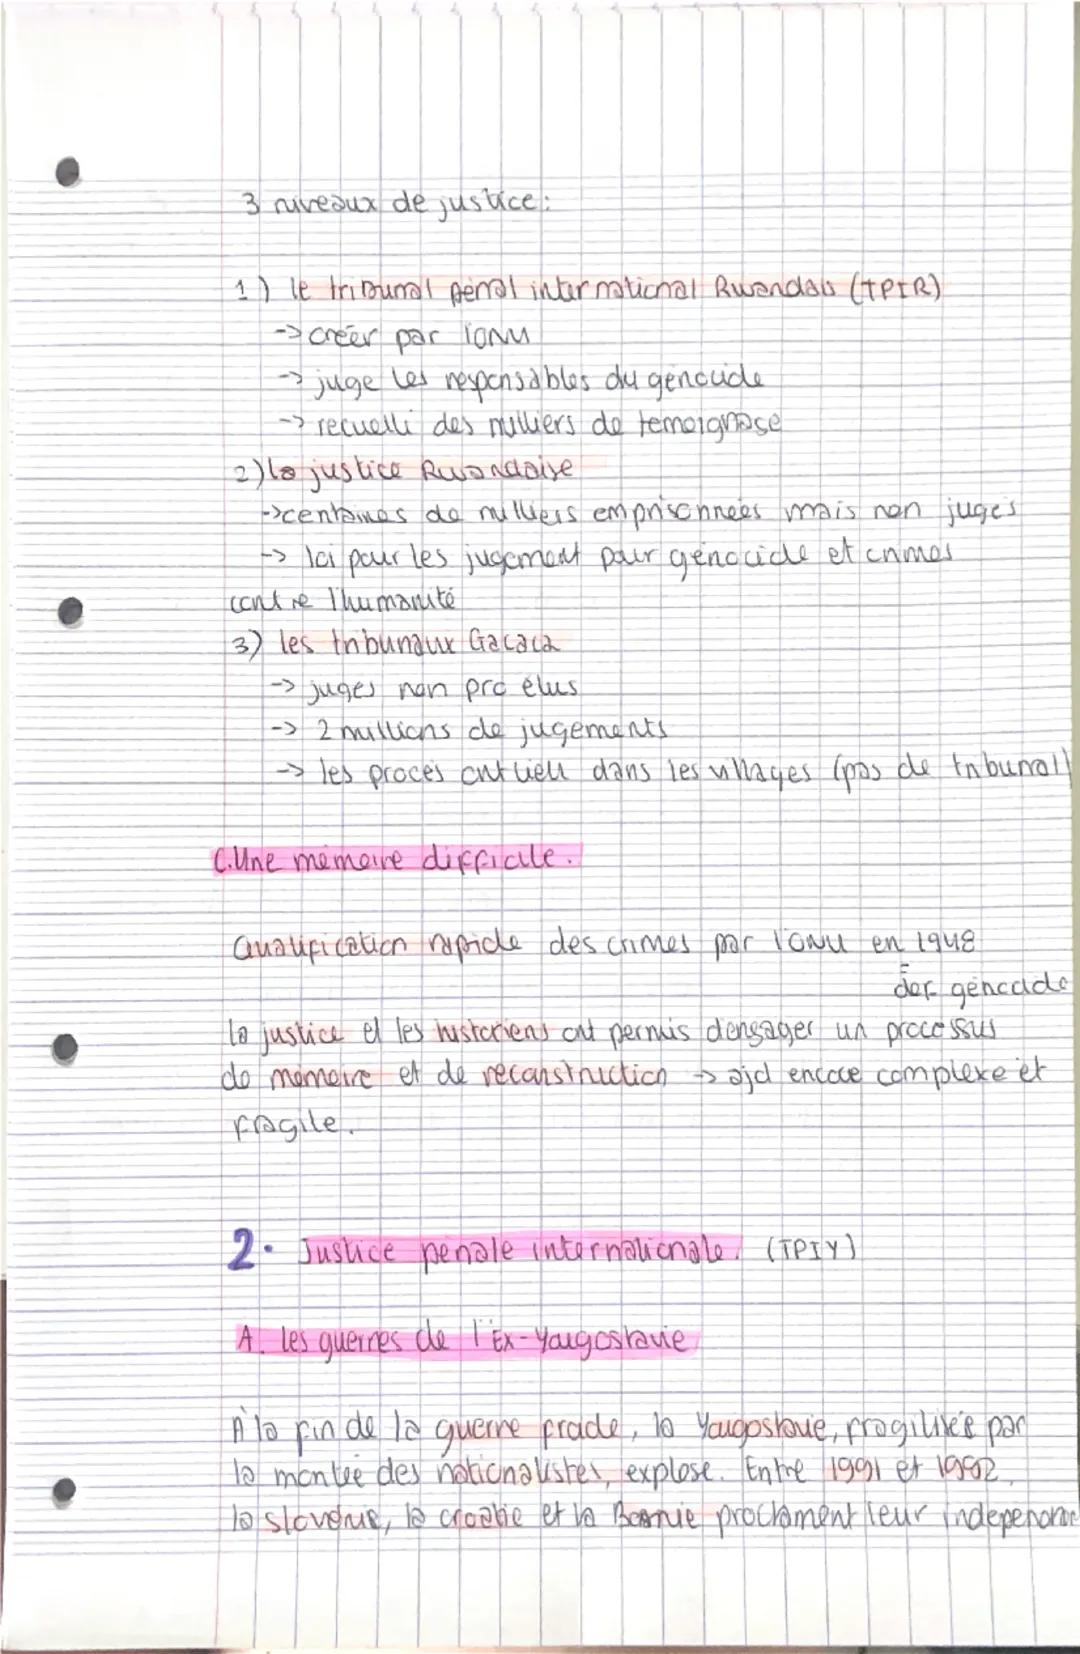 3 niveaux de justice :
1) le tribunal pénal international Rwandais (TPIR)
-> créer par l'ONU
-> juge les responsables du génocide
-> recuelli des milliers de temoignage
2) la justice Rwandaise
-> centaines de milliers emprisonnées mais non jugés
-> loi pour les jugement pour génocide et crimes
contre l'humanité
3) les tribunaux Gacaca
-> juges non pro élus
-> 2 millions de jugements
-> les procès ont lieu dans les villages (pas de tribunal)
C. Une mémoire difficile.
Qualification rapide des crimes par l'ONU en 1948
def génocide
la justice et les historiens ont permis d'engager un processus
de mémoire et de reconstruction -> ajd encore complexe et
fragile.
2. Justice pénale internationale. (TPIY)
A. les guerres de l'Ex-Yougoslavie
A la fin de la guerre froide, la Yougoslavie, fragilisée par
la montée des nationalistes, explose. Entre 1991 et 1992,
la slovénie, la croatie et la Bosnie proclament leur indépendance